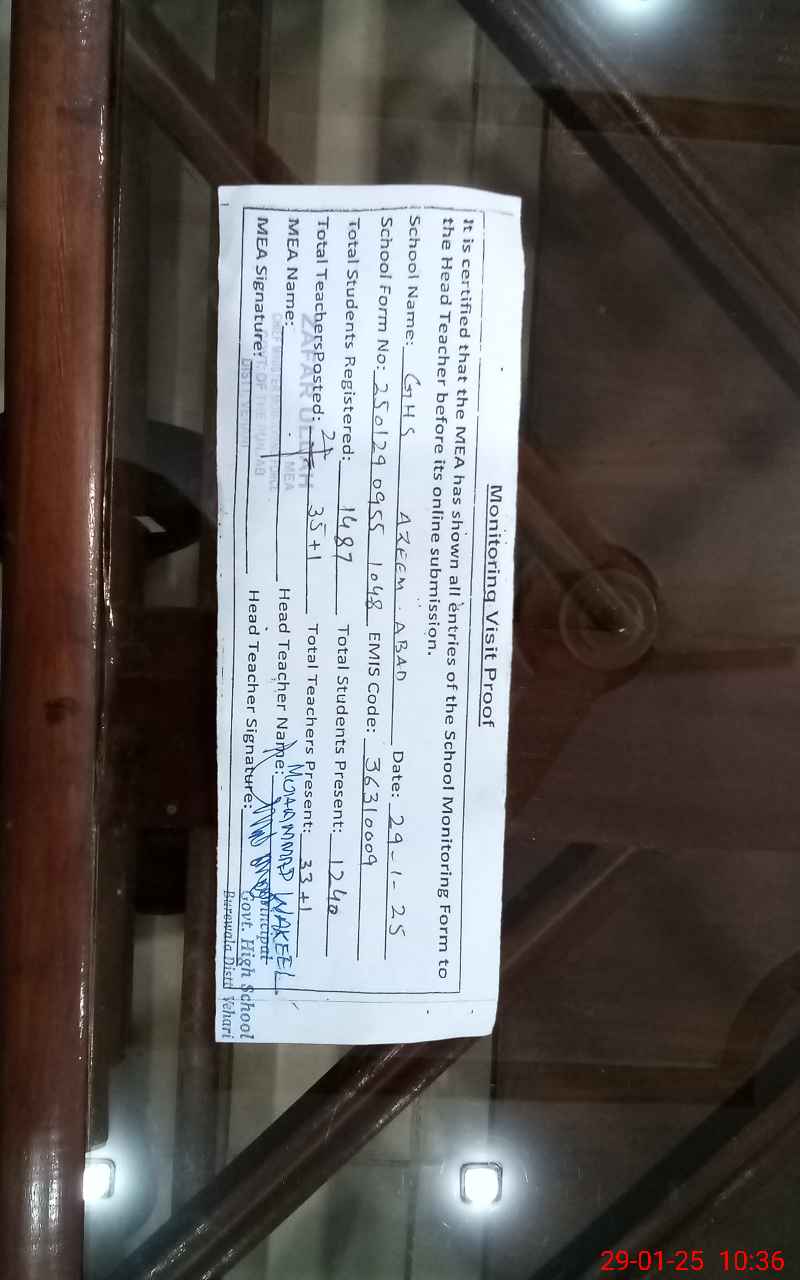 Monitoring Visit Proof
It is certified that the MEA has shown all entries of the School Monitoring Form to
the Head Teacher before its online submission.
School Name: GHS AZEEM . ABAD Date: 29-1-25
School Form No: 250129 0955 1048 EMIS Code: 36310009
Total Students Registered: 1487 Total Students Present: 1240
Total TeachersPosted: 35+1 Total Teachers Present: 33+1
MEA Name: ZAFAR ULLAH MEA Head Teacher Name: MUHAMMAD WAKEEL
MEA Signature: Head Teacher Signature:
Principal
Govt. High School
Burewala Distt Vehari
29-01-25 10:36